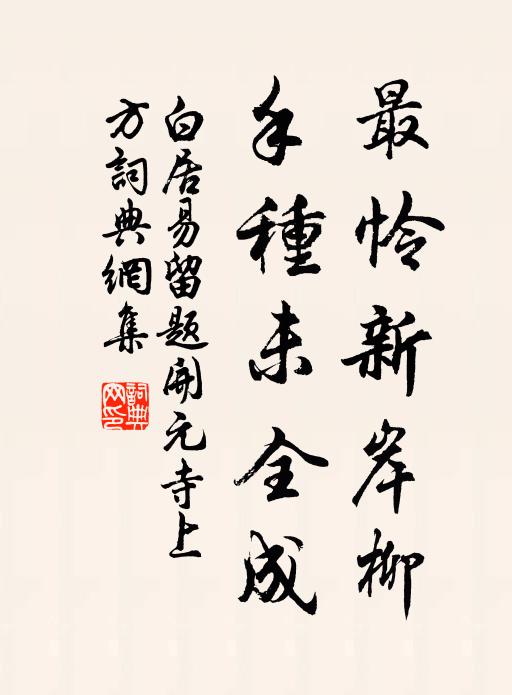 最怜新岸柳
手種未全成
白居易留题開元寺上
方詞典網集
詞典
网印